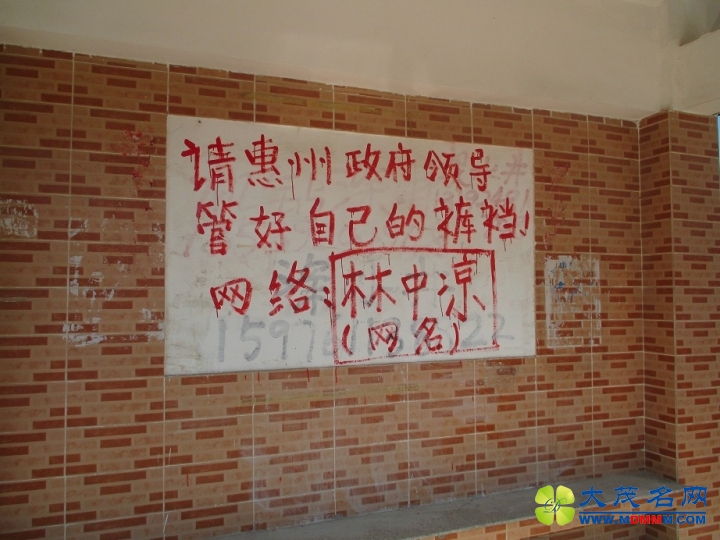 请惠州政府领导
管好自己的裤裆!
网络:林中凉
(网名)
大茂名网
WWW.MDMMM.COM